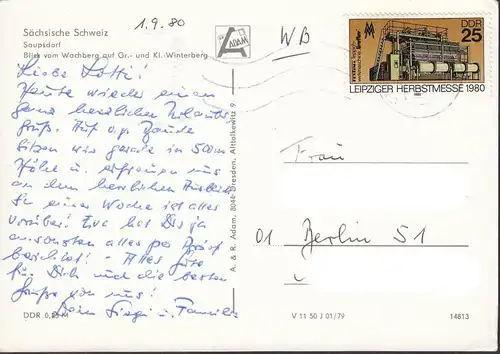 Sächsische Schweiz
Saupsdorf
Blick vom Wachberg auf Gr.- und Kl.-Winterberg
1.9.80
ADAM
WB
DDR
25
LEIPZIGER HERBSTMESSE 1980
Liebe Lotti!
Heute wieder einen
ganz herzlichen Urlaubs
gruß. Auf o.g. Baude
sitzen wir gerade in 500m
Höhe u. erfreuen uns
an dem herrlichen Ausblick.
In einer Woche ist alles
vorüber! Eva hat Dir ja
ansonsten alles per Brief
berichtet! - Alles Gute
für Dich und die besten
Grüße von uns!
Dein Siegi u. Familie
A. & R. Adam, 8046 Dresden, Alttolkewitz 9
Frau
01 Berlin 51
DDR 0,25 M
V 11 50 J 01/79
14813